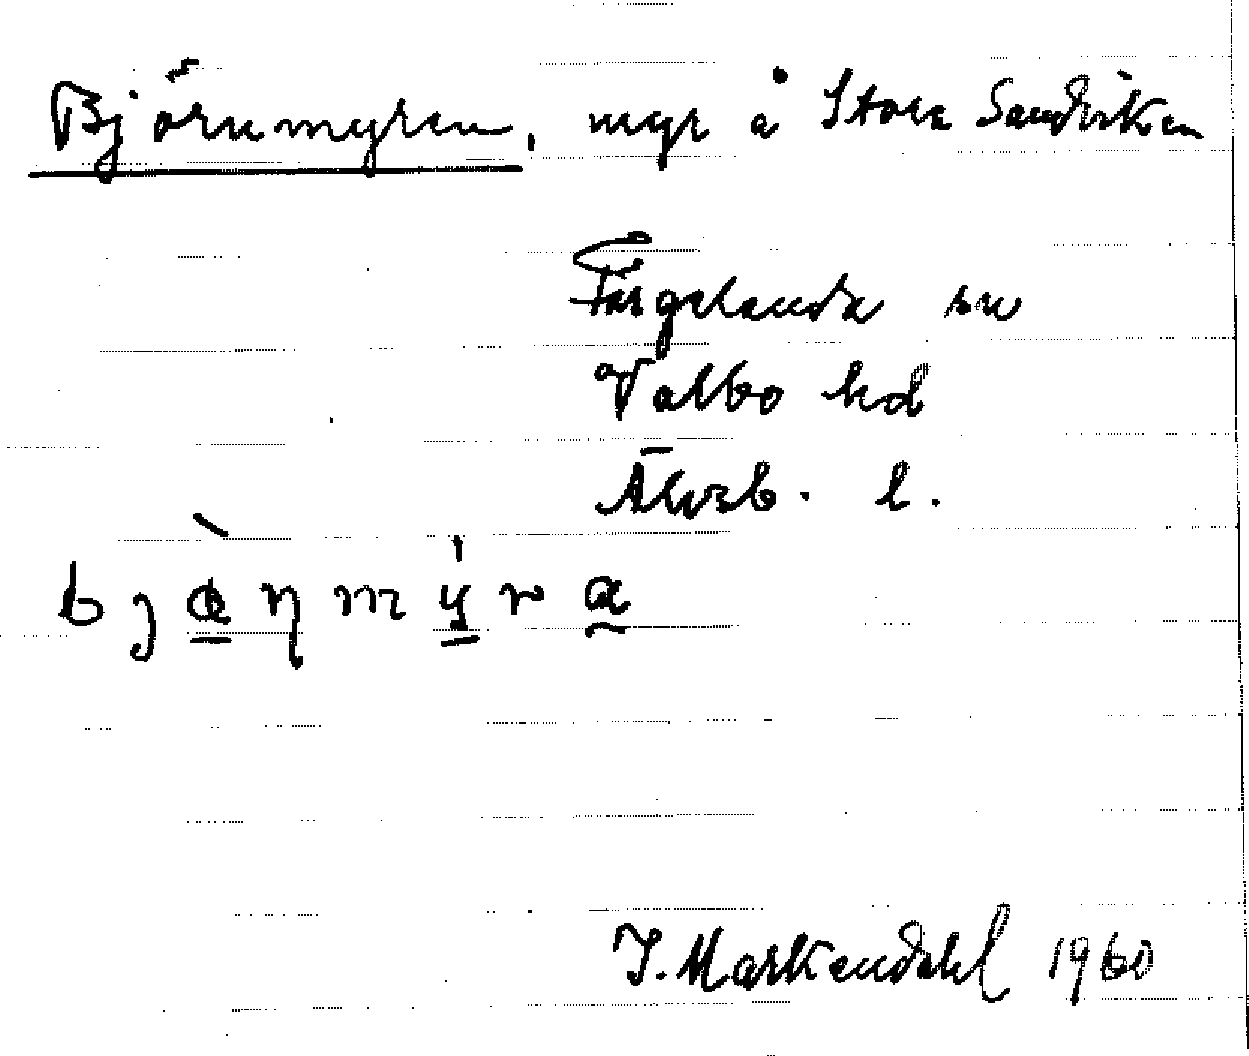 Björnmyren, myr å Stora Sandviken
Färgelanda sn
Valbo hd
Älvsb. l.
I. Markendahl 1960